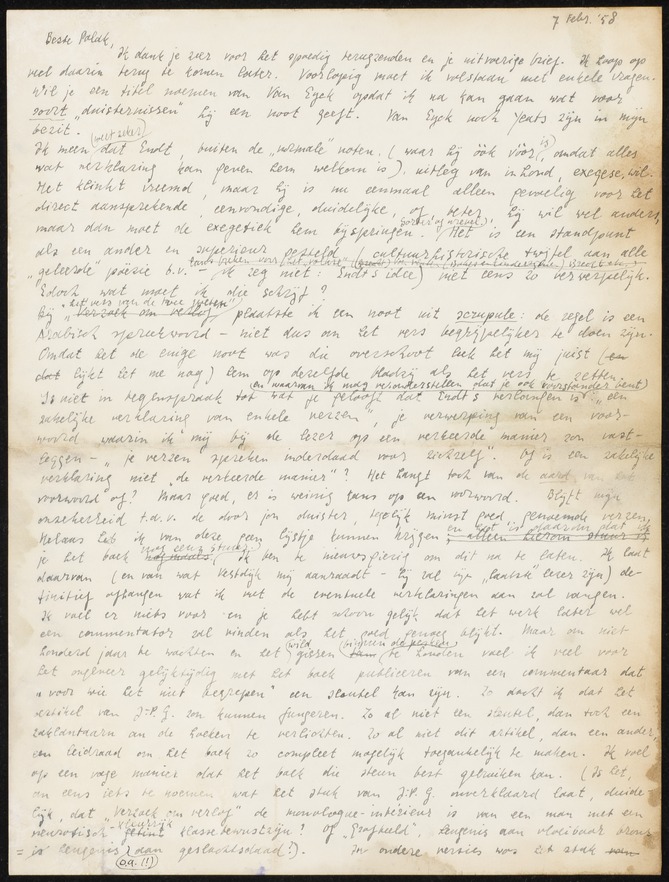 7 Febr. '58
Beste Poldk,
Ik dank je zeer voor het spoedig terugzenden en je uitvoerige brief. Ik hoop op
veel daarin terug te komen later. Voorlopig moet ik volstaan met enkele vragen.
Wil je een titel noemen van Van Eyck opdat ik na kan gaan wat voor
soort „duisternissen" hij een noot geeft. Van Eyck noch Yeats zijn in mijn
bezit.
Ik meen (weet zeker) dat Endt, buiten de „normale" noten, (waar hij óók vóór is, omdat alles
wat verklaring kan geven hem welkom is), uitleg van inhoud, exegese, wil.
Het klinkt vreemd, maar hij is nu eenmaal alleen gevoelig voor het
direct aansprekende, eenvoudige, duidelijke, of beter, hij wil wel anders,
maar dan moet de exegetiek hem bijspringen. Het is een standpunt
als een ander en superieur gesteld cultuurhistorische twijfel aan alle
„geleerde" poëzie b.v. – ik zeg niet: Endt's idee) niet eens zo verwerpelijk.
Edoch wat moet ik die schrijf?
Bij „Verzoek om verlof" plaatste ik een noot uit scrupule: de regel is een
Arabisch spreekwoord – niet dus om het vers begrijpelijker te doen zijn.
Omdat het de enige noot was die overschoot leek het mij juist (en
dat lijkt het me nog) hem op dezelfde bladzij als het vers te zetten.
(en waarvan ik mag veronderstellen dat je ook voorstander bent)
Is niet in tegenspraak tot wat je gelooft dat Endt's verlangen is „een
zakelijke verklaring van enkele verzen", je verwerping van een voor-
woord waarin ik „mij bij de lezer op een verkeerde manier zou vast-
leggen – „je verzen spreken inderdaad voor zichzelf". Of is een zakelijke
verklaring niet „de verkeerde manier"? Het hangt toch van de aard van het
voorwoord af? Maar goed, er is weinig kans op een voorwoord. Blijft mijn
onzekerheid t.o.v. de door jou duister, tegelijk minst goed genoemde verzen.
Helaas heb ik van deze geen lijstje kunnen krijgen
je het boek nog eens
Ik ben te nieuwsgierig om dit na te laten. Ik laat
daarvan (en van wat Vestdijk mij aanraadt – hij zal mijn „laatste" lezer zijn) de-
finitief afhangen wat ik met de eventuele verklaringen aan zal vangen.
Ik voel er niets voor en je hebt schoon gelijk dat het werk later wel
een commentator zal vinden als het goed genoeg blijkt. Maar om niet
honderd jaar te wachten en het wild gissen binnen de perken te houden voel ik veel voor
het ongeveer gelijktijdig met het boek publiceren van een commentaar dat
„voor wie het niet begrepen" een sleutel kan zijn. Zo dacht ik dat het
artikel van J.P.G. zou kunnen fungeren. Zo al niet een sleutel, dan toch een
zaklantaarn om de hoeken te verlichten. Zo al niet dit artikel, dan een ander,
een leidraad om het boek zo compleet mogelijk toegankelijk te maken. Ik voel
op een vage manier dat het boek die steun best gebruiken kan. (Is het,
om eens iets te noemen, wat het stuk van J.P.G. onverklaard laat, duide-
lijk, dat „Verzoek om verlof" de monologue-intérieur is van een man met een
neurotisch kleurrijk getint klassebewustzijn? Of „Grafbeeld",
geslachtsdaad?). In andere versies was het stuk
(o.a. !!)